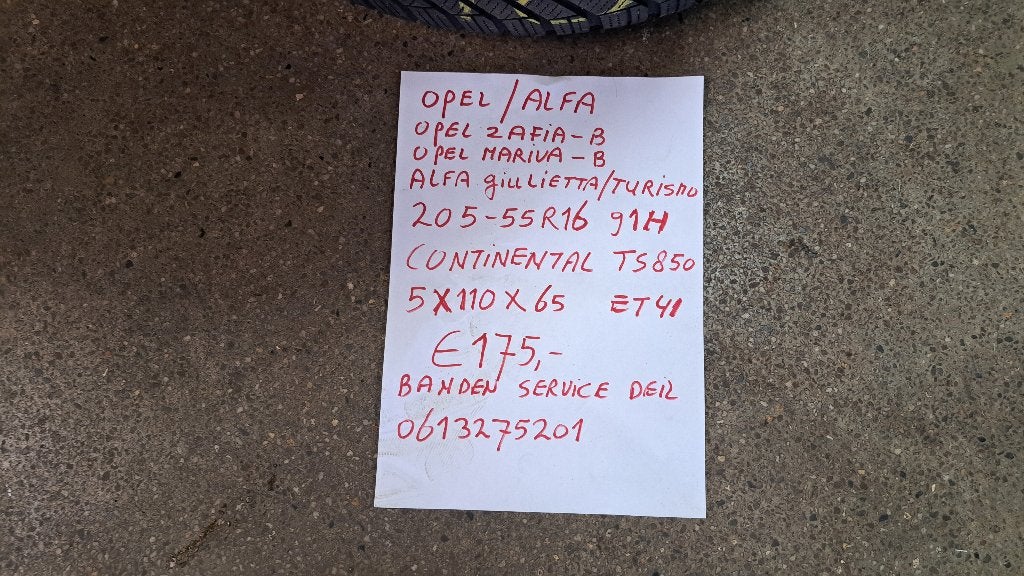 OPEL / ALFA
OPEL ZAFIA-B
OPEL MARIVA-B
ALFA giULIETTA/TURISMO
205-55R16 91H
CONTINENTAL TS850
5X110X65 ET41
€175,-
BANDEN SERVICE DEIL
0613275201